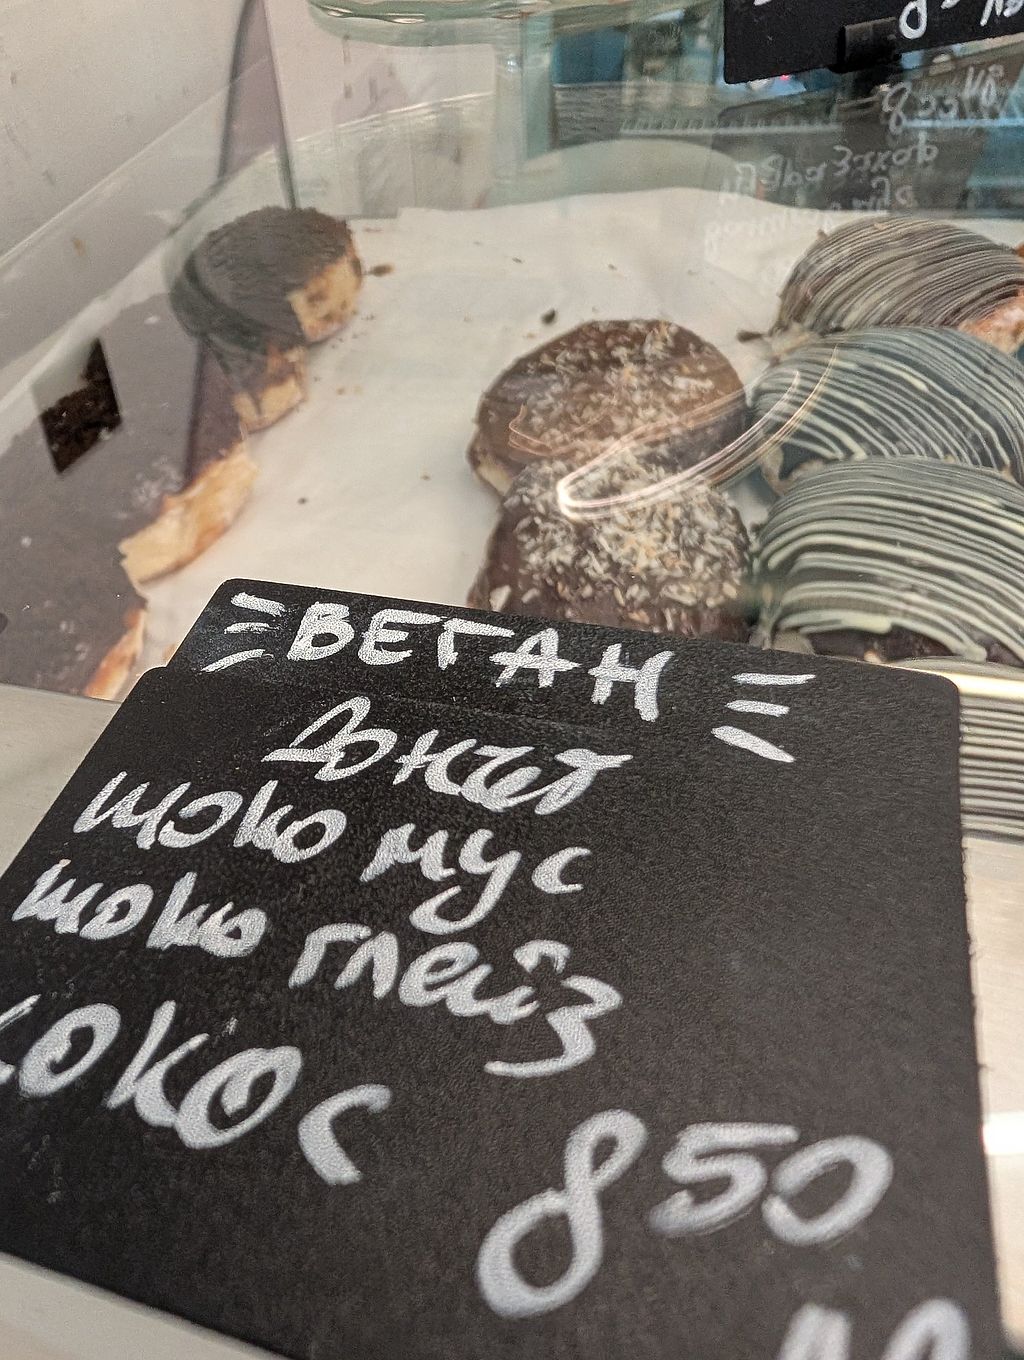 ВЕГАН
донат
шоко мус
шоко глейз
кокос
850